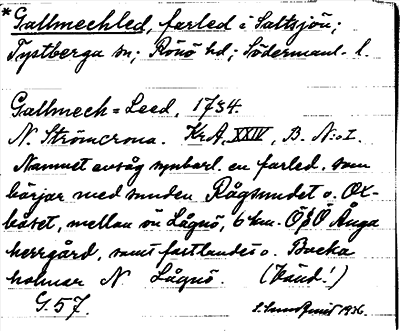 *Gallmechled, farled i Saltsjön;
Tystberga sn; Rönö hd; Södermanl. l.
Gallmech=Leed, 1734.
N. Strömcrona. Kr.A. XXIV, B. N:o 1.
Namnet avsåg synbarl. en farled, som
börjar med sunden Rågsundet o. Ox-
båset, mellan ön Långö, 6 km. ÖSÖ Ånga
herrgård, samt fastlandet o. Bocka
holmar N Långö. (Vänd!)
G. 57. 1936.